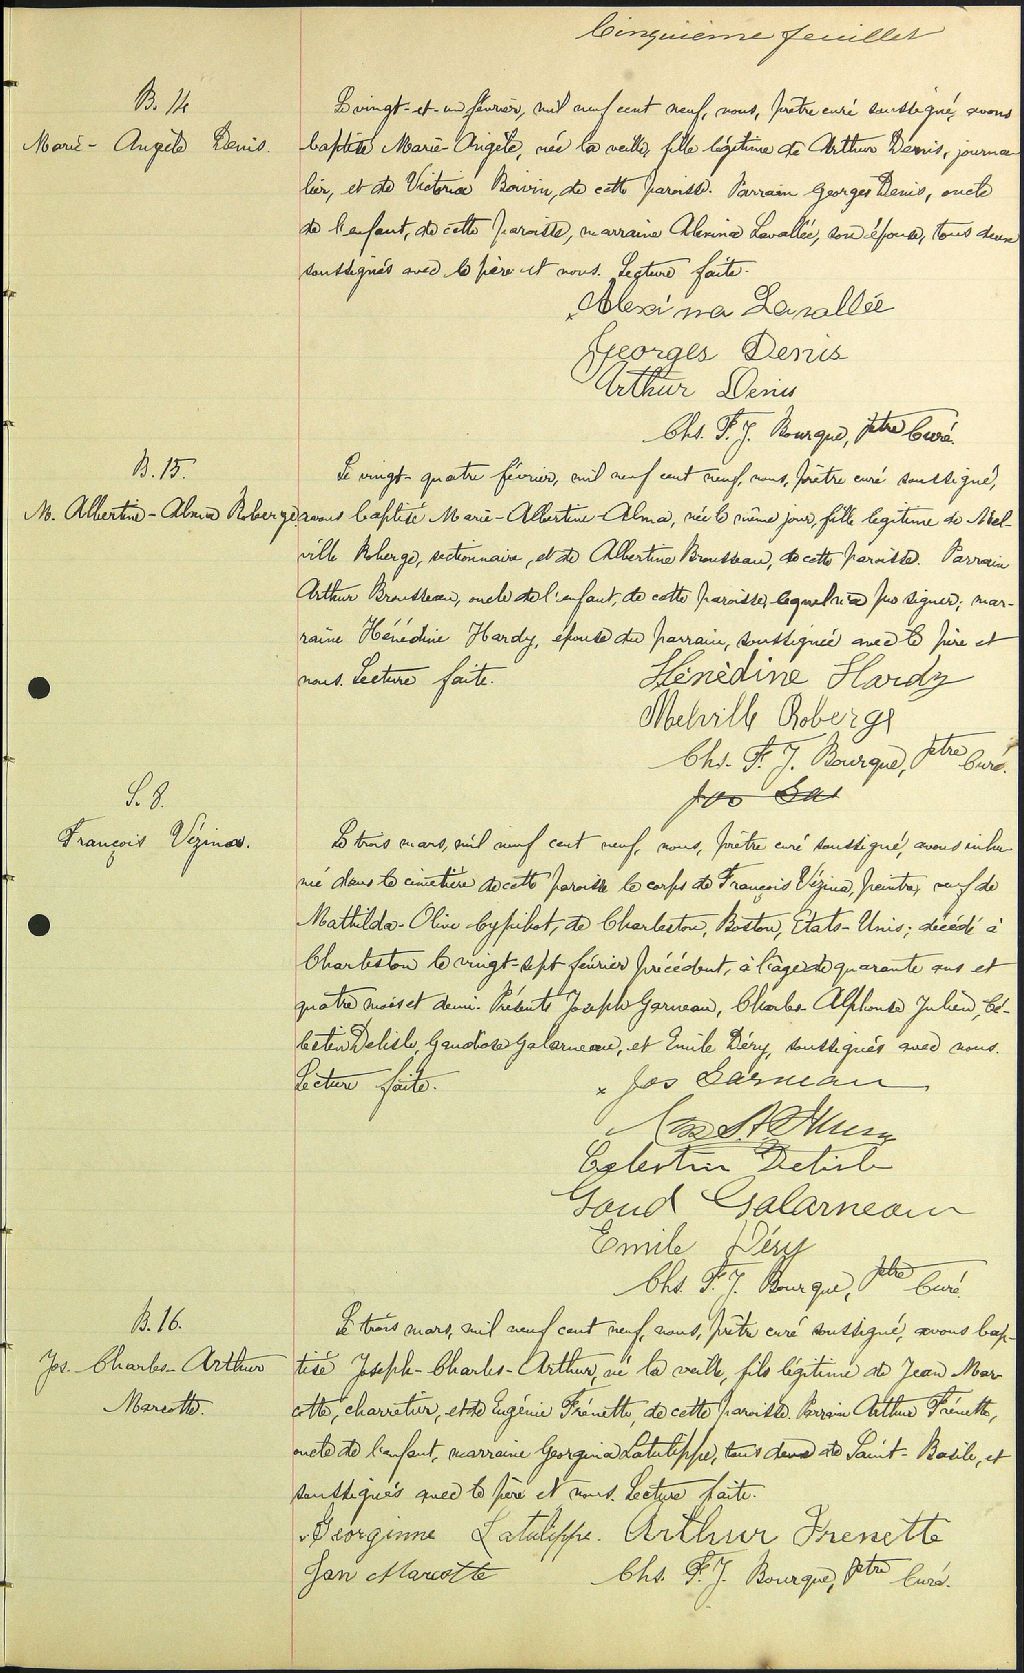 Cinquième feuillet
B. 14
Marie-Angèle Denis.
Le vingt-et-un février, mil neuf cent neuf, nous, prêtre curé soussigné, avons
baptisé Marie-Angèle, née la veille, fille légitime de Arthur Denis, journa-
lier, et de Victoria Boivin, de cette paroisse. Parrain Georges Denis, oncle
de l'enfant, de cette paroisse, marraine Alexina Lavallée, son épouse, tous deux
soussignés avec le père et nous. Lecture faite.
x Alexina Lavallée
Georges Denis
Arthur Denis
Chs. F. J. Bourque, ptre Curé.
B. 15.
M. Albertine-Alma Roberge
Le vingt-quatre février, mil neuf cent neuf, nous, prêtre curé soussigné,
avons baptisé Marie-Albertine-Alma, née le même jour, fille légitime de Mel-
ville Roberge, sectionnaire, et de Albertine Brousseau, de cette paroisse. Parrain
Arthur Brousseau, oncle de l'enfant, de cette paroisse, lequel n'a pu signer; mar-
raine Hénédine Hardy, épouse du parrain, soussignée avec le père et
nous. Lecture faite.
Hénédine Hardy
Melville Roberge
Chs. F. J. Bourque, ptre Curé.
Jos Ga
S. 8.
François Vézina.
Le trois mars, mil neuf cent neuf, nous, prêtre curé soussigné, avons inhu-
mé dans le cimetière de cette paroisse le corps de François Vézina, peintre, veuf de
Mathilda-Olive de Charleston, Boston, Etats-Unis; décédé à
Charleston le vingt-sept février précédent, à l'âge de quarante ans et
quatre mois et demi. Présents Joseph Garneau, Charles-Alphonse Julien, Cé-
lestin Delisle, Gaudiose Galarneau, et Emile Déry, soussignés avec nous.
Lecture faite.
x Jos Garneau
Celestin Delisle
Gaud Galarneau
Emile Déry
Chs. F. J. Bourque, ptre Curé.
B. 16.
Jos. Charles-Arthur
Marcotte.
Le trois mars, mil neuf cent neuf, nous, prêtre curé soussigné, avons bap-
tisé Joseph-Charles-Arthur, né la veille, fils légitime de Jean Mar-
cotte, charretier, et de Eugénie Frénette, de cette paroisse. Parrain Arthur Frénette,
oncle de l'enfant, marraine Georgina Latulippe, tous deux de Saint-Basile, et
soussignés avec le père et nous. Lecture faite.
x Georginne Latulippe. Arthur Frenette
Jan Marcotte Chs. F. J. Bourque, ptre Curé.